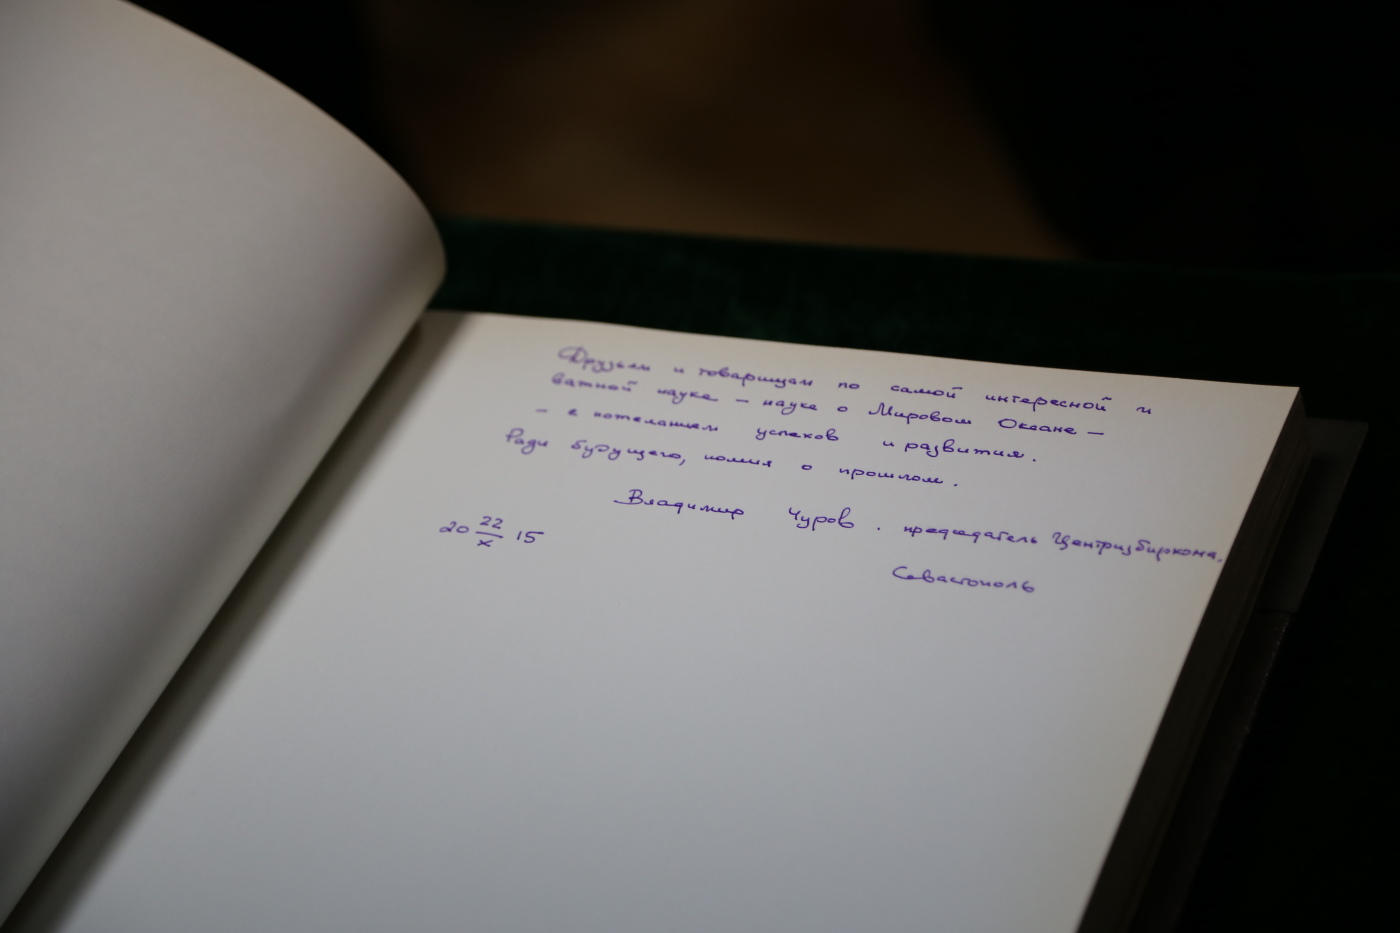 Друзьям и товарищам по самой интересной и
важной науке – науке о Мировом Океане –
– с пожеланием успехов и развития.
Ради будущего, помня о прошлом.
Владимир Чуров. председатель Центризбиркома,
20 22/X 15
Севастополь